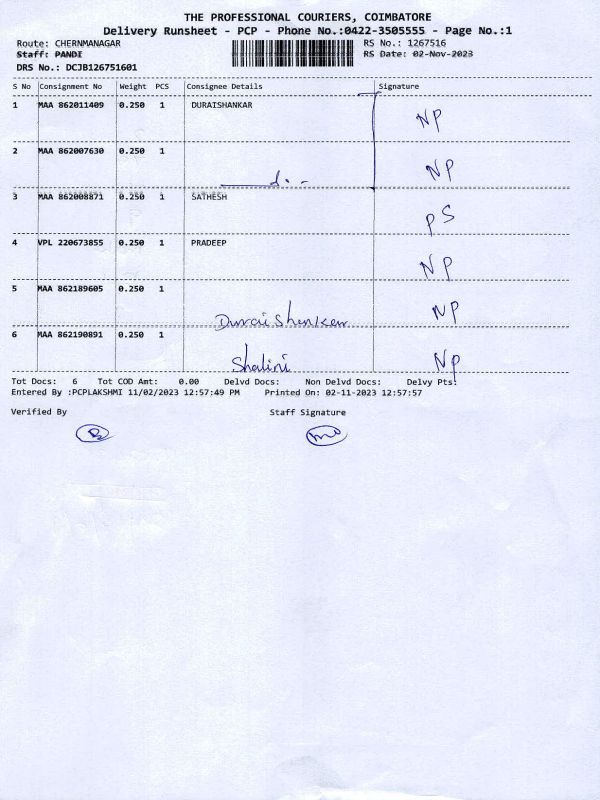 THE PROFESSIONAL COURIERS, COIMBATORE
Delivery Runsheet - PCP - Phone No.:0422-3505555 - Page No.:1
Route: CHERNMANAGAR RS No.: 1267516
Staff: PANDI RS Date: 02-Nov-2023
DRS No.: DCJB126751601
S No Consignment No Weight PCS Consignee Details Signature
1 MAA 862011409 0.250 1 DURAISHANKAR NP
2 MAA 862007630 0.250 1 NP
3 MAA 862008871 0.250 1 SATHESH PS
4 VPL 220673855 0.250 1 PRADEEP NP
5 MAA 862189605 0.250 1 Durai Shankar NP
6 MAA 862190891 0.250 1 Shalini NP
Tot Docs: 6 Tot COD Amt: 0.00 Delvd Docs: Non Delvd Docs: Delvy Pts:
Entered By :PCPLAKSHMI 11/02/2023 12:57:49 PM Printed On: 02-11-2023 12:57:57
Verified By Staff Signature